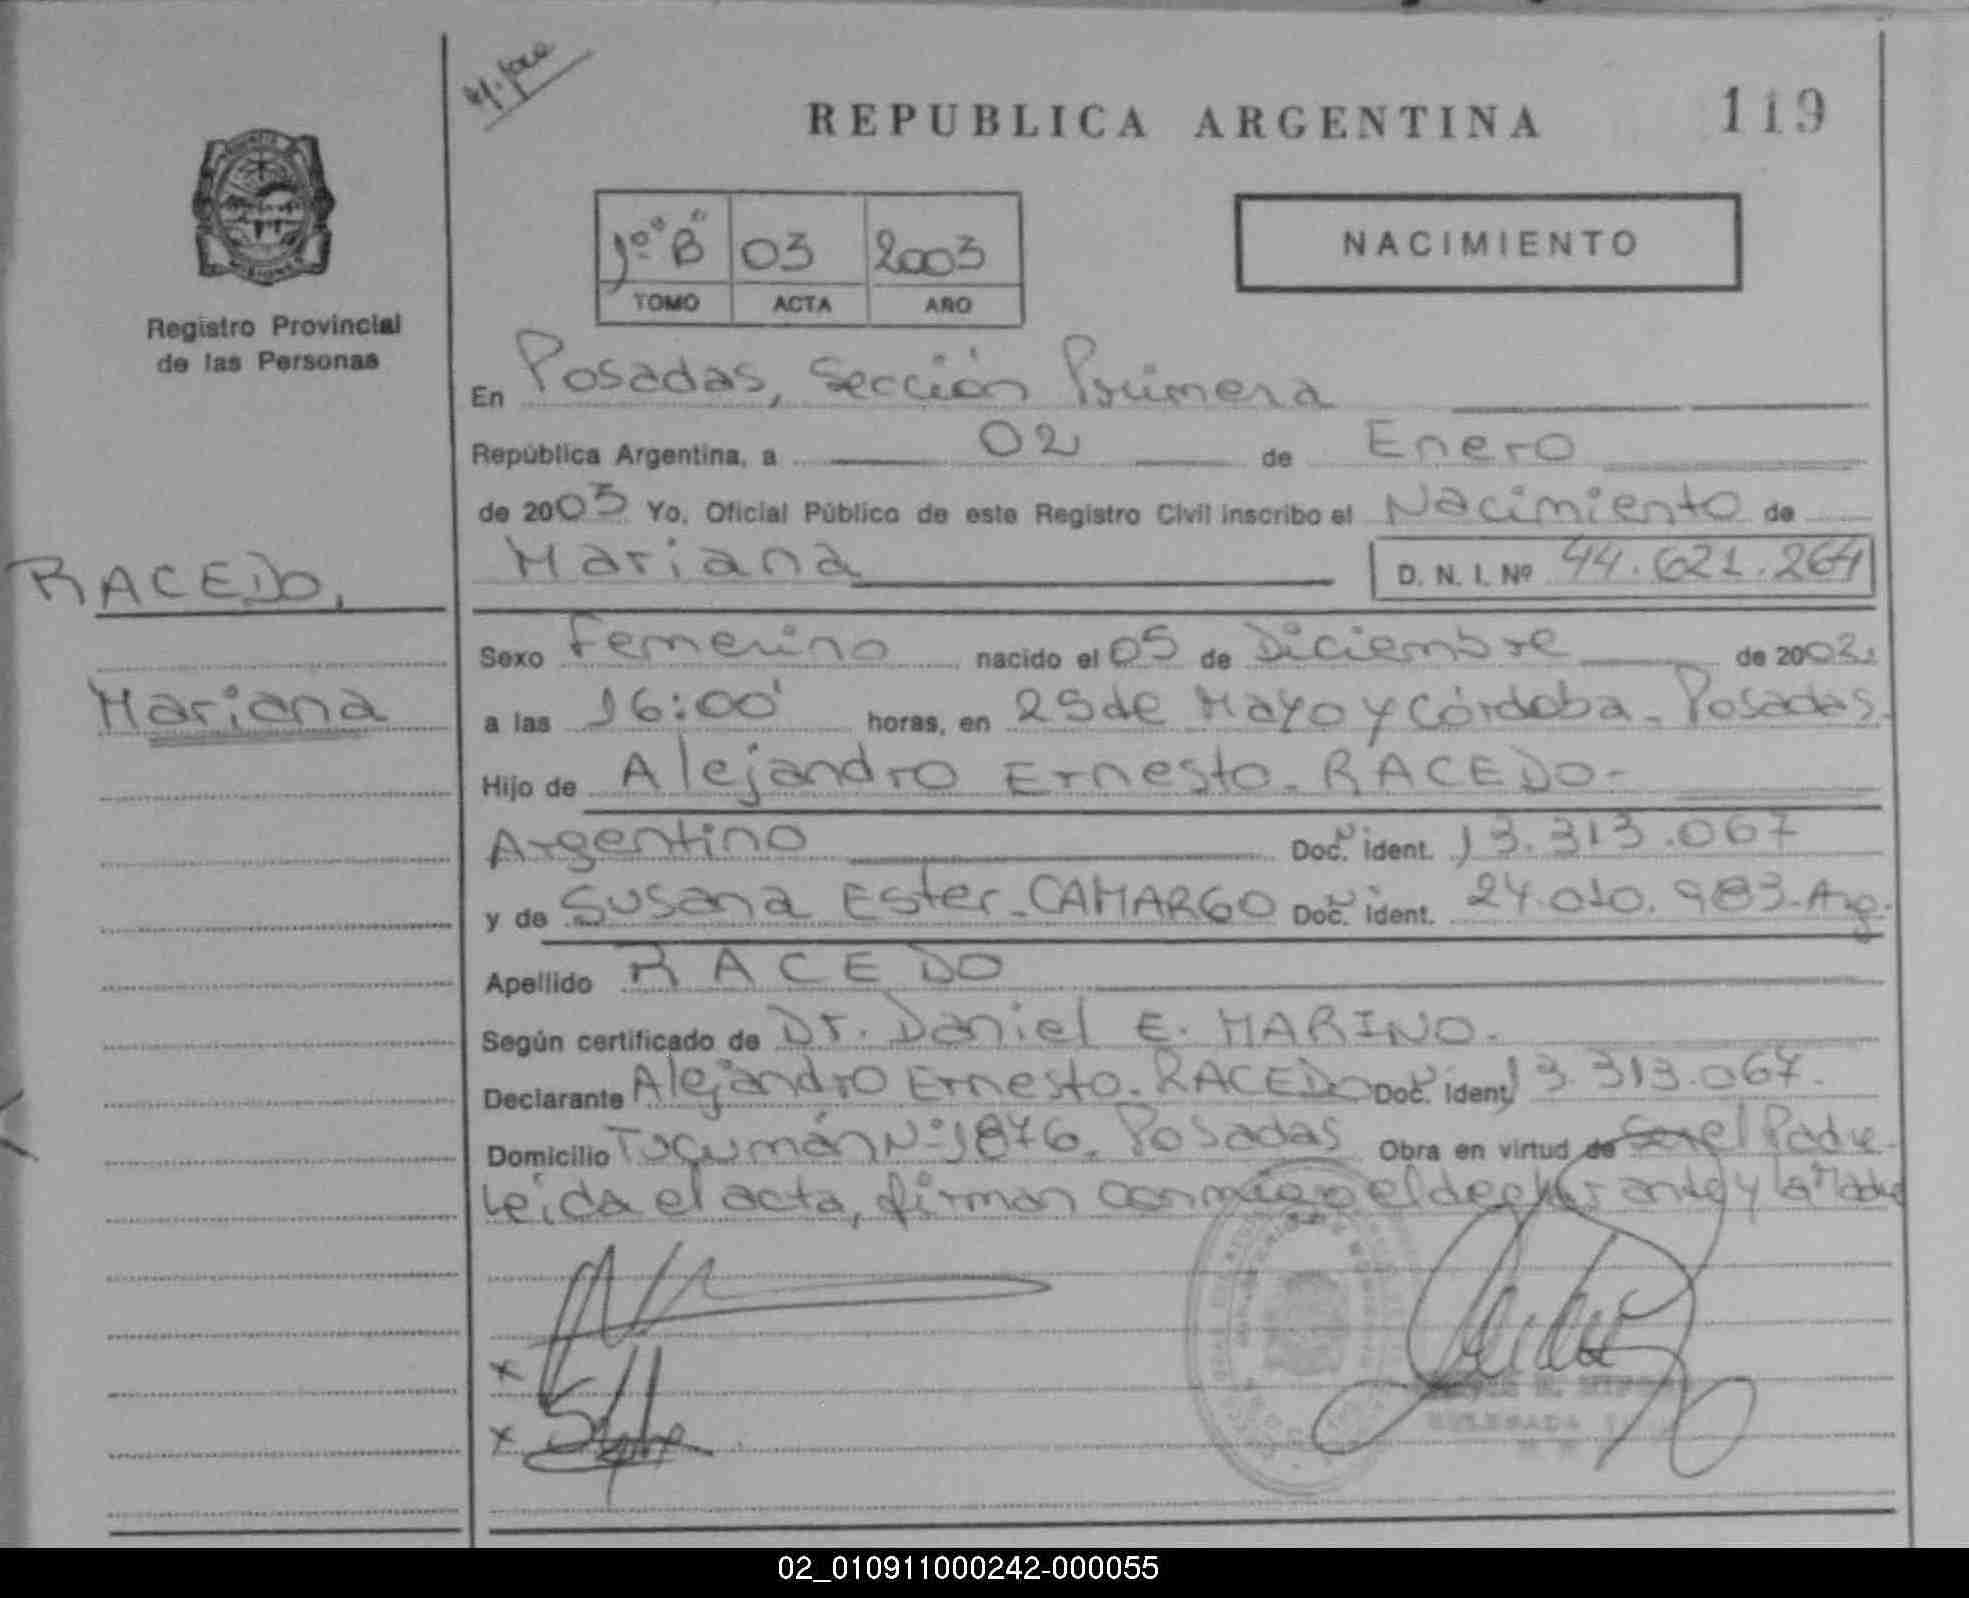 REPUBLICA ARGENTINA
119
1º "B" 03 2003
TOMO ACTA AÑO
NACIMIENTO
Registro Provincial
de las Personas
RACEDO,
Mariana
En Posadas, Sección Primera
República Argentina, a 02 de Enero
de 2003 Yo, Oficial Público de este Registro Civil inscribo el Nacimiento de
Mariana D. N. I. Nº 44.621.264
Sexo Femenino nacido el 05 de Diciembre de 2002.
a las 16:00' horas, en 25 de Mayo y Córdoba - Posadas.
Hijo de Alejandro Ernesto - RACEDO -
Argentino Doc. ident. 13.313.067
y de Susana Ester - CAMARGO Doc. ident. 24.010.983 - Arg.
Apellido RACEDO
Según certificado de Dr. Daniel E. MARINO.
Declarante Alejandro Ernesto - RACEDO Doc. ident. 13.313.067.
Domicilio Tucumán Nº 1876, Posadas Obra en virtud de Ser el Padre.
Leída el acta, firman conmigo el declarante y la Madre
x
x
02_010911000242-000055